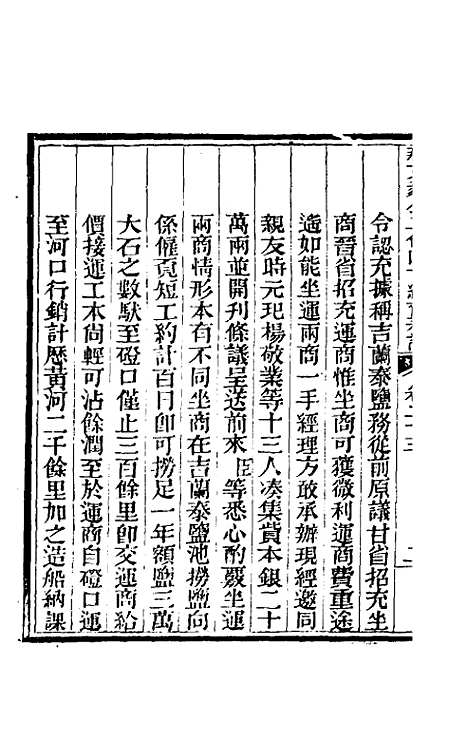 令認充據稱吉蘭泰鹽務從前原議甘省招充坐
商晉省招充運商惟坐商可獲微利運商費重途
遙如能坐運兩商一手經理方敢承辦現經邀同
親友時元玘楊敬業等十三人湊集貲本銀二十
萬兩並開列條議呈送前來臣等悉心酌覈坐運
兩商情形本有不同坐商在吉蘭泰鹽池撈鹽向
係僱覓短工約計百日卽可撈足一年額鹽三萬
大石之數馱至磴口僅止三百餘里卽交運商給
價接運工本尚輕可沾餘潤至於運商自磴口運
至河口行銷計歷黃河二千餘里加之造船納課